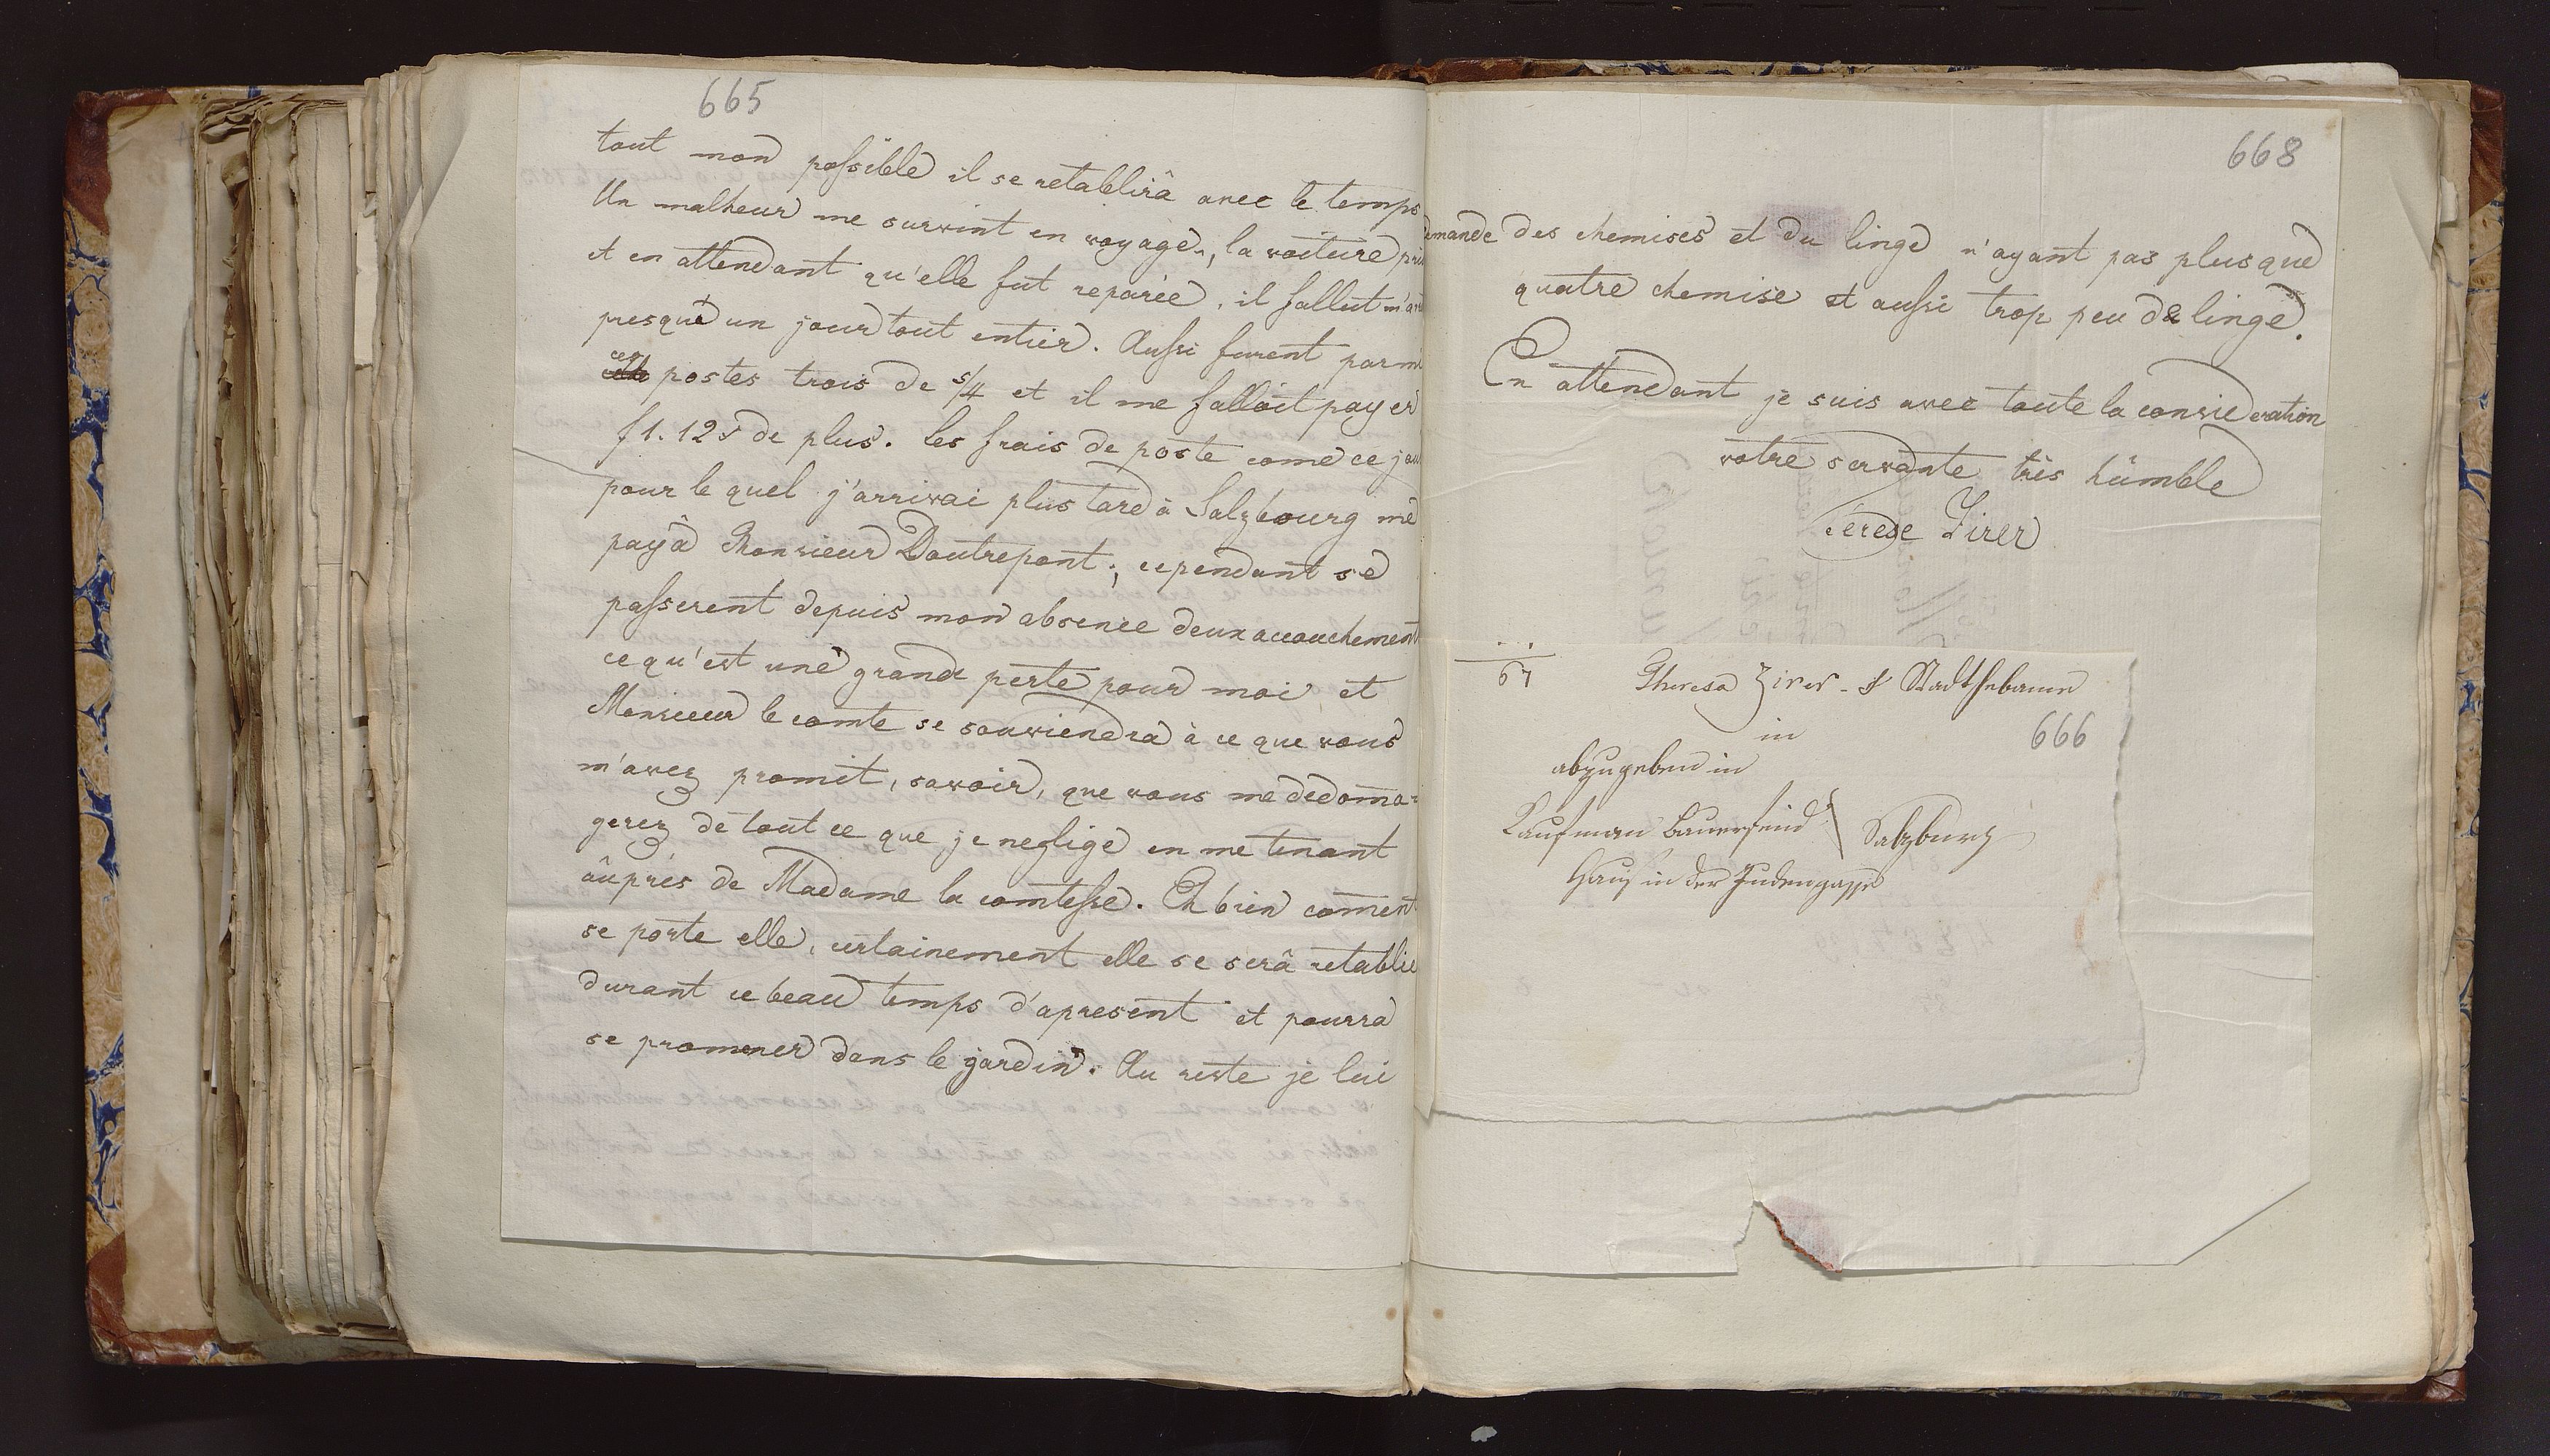 665
tout mon possible il se retablirâ avec le temps
Un malheur me survint en voyage, la voiture
et en attendant qu'elle fut reparée, il fallut
presque un jour tout entier. Aussi furent parmi
ces postes trois de 5/4 et il me falloit payer
f 1. 12 x de plus. les frais de poste come ce jou
pour le quel j'arrivai plus tard à Salzbourg me
payâ Monsieur Doutrepont; cependant se
passerent depuis mon absence deux acouchement
ce qu'est une grande perte pour moi et
Monsieur le comte se souviendra à ce que vous
m'avez promit, savoir, que vous me dedoma=
gerez de tout ce que je neglige en me tenant
âuprés de Madame la comtesse. Eh bien coment
se porte elle, certainement elle se serâ retablie
durant ce beau temps d'apresent et pourra
se promener dans le jardin. Au reste je lui
668
demande des chemises et du linge n'ayant pas plus que
quatre chemise et aussi trop peu de linge.
En attendant je suis avec toute la consideration
votre servante très hûmble
Terese Zirer
67
Theresa Zirer Stadthebame
in
666
abzugeben in
Kaufman Bauernfeind
Salzburg
Hauß in der Judengasse